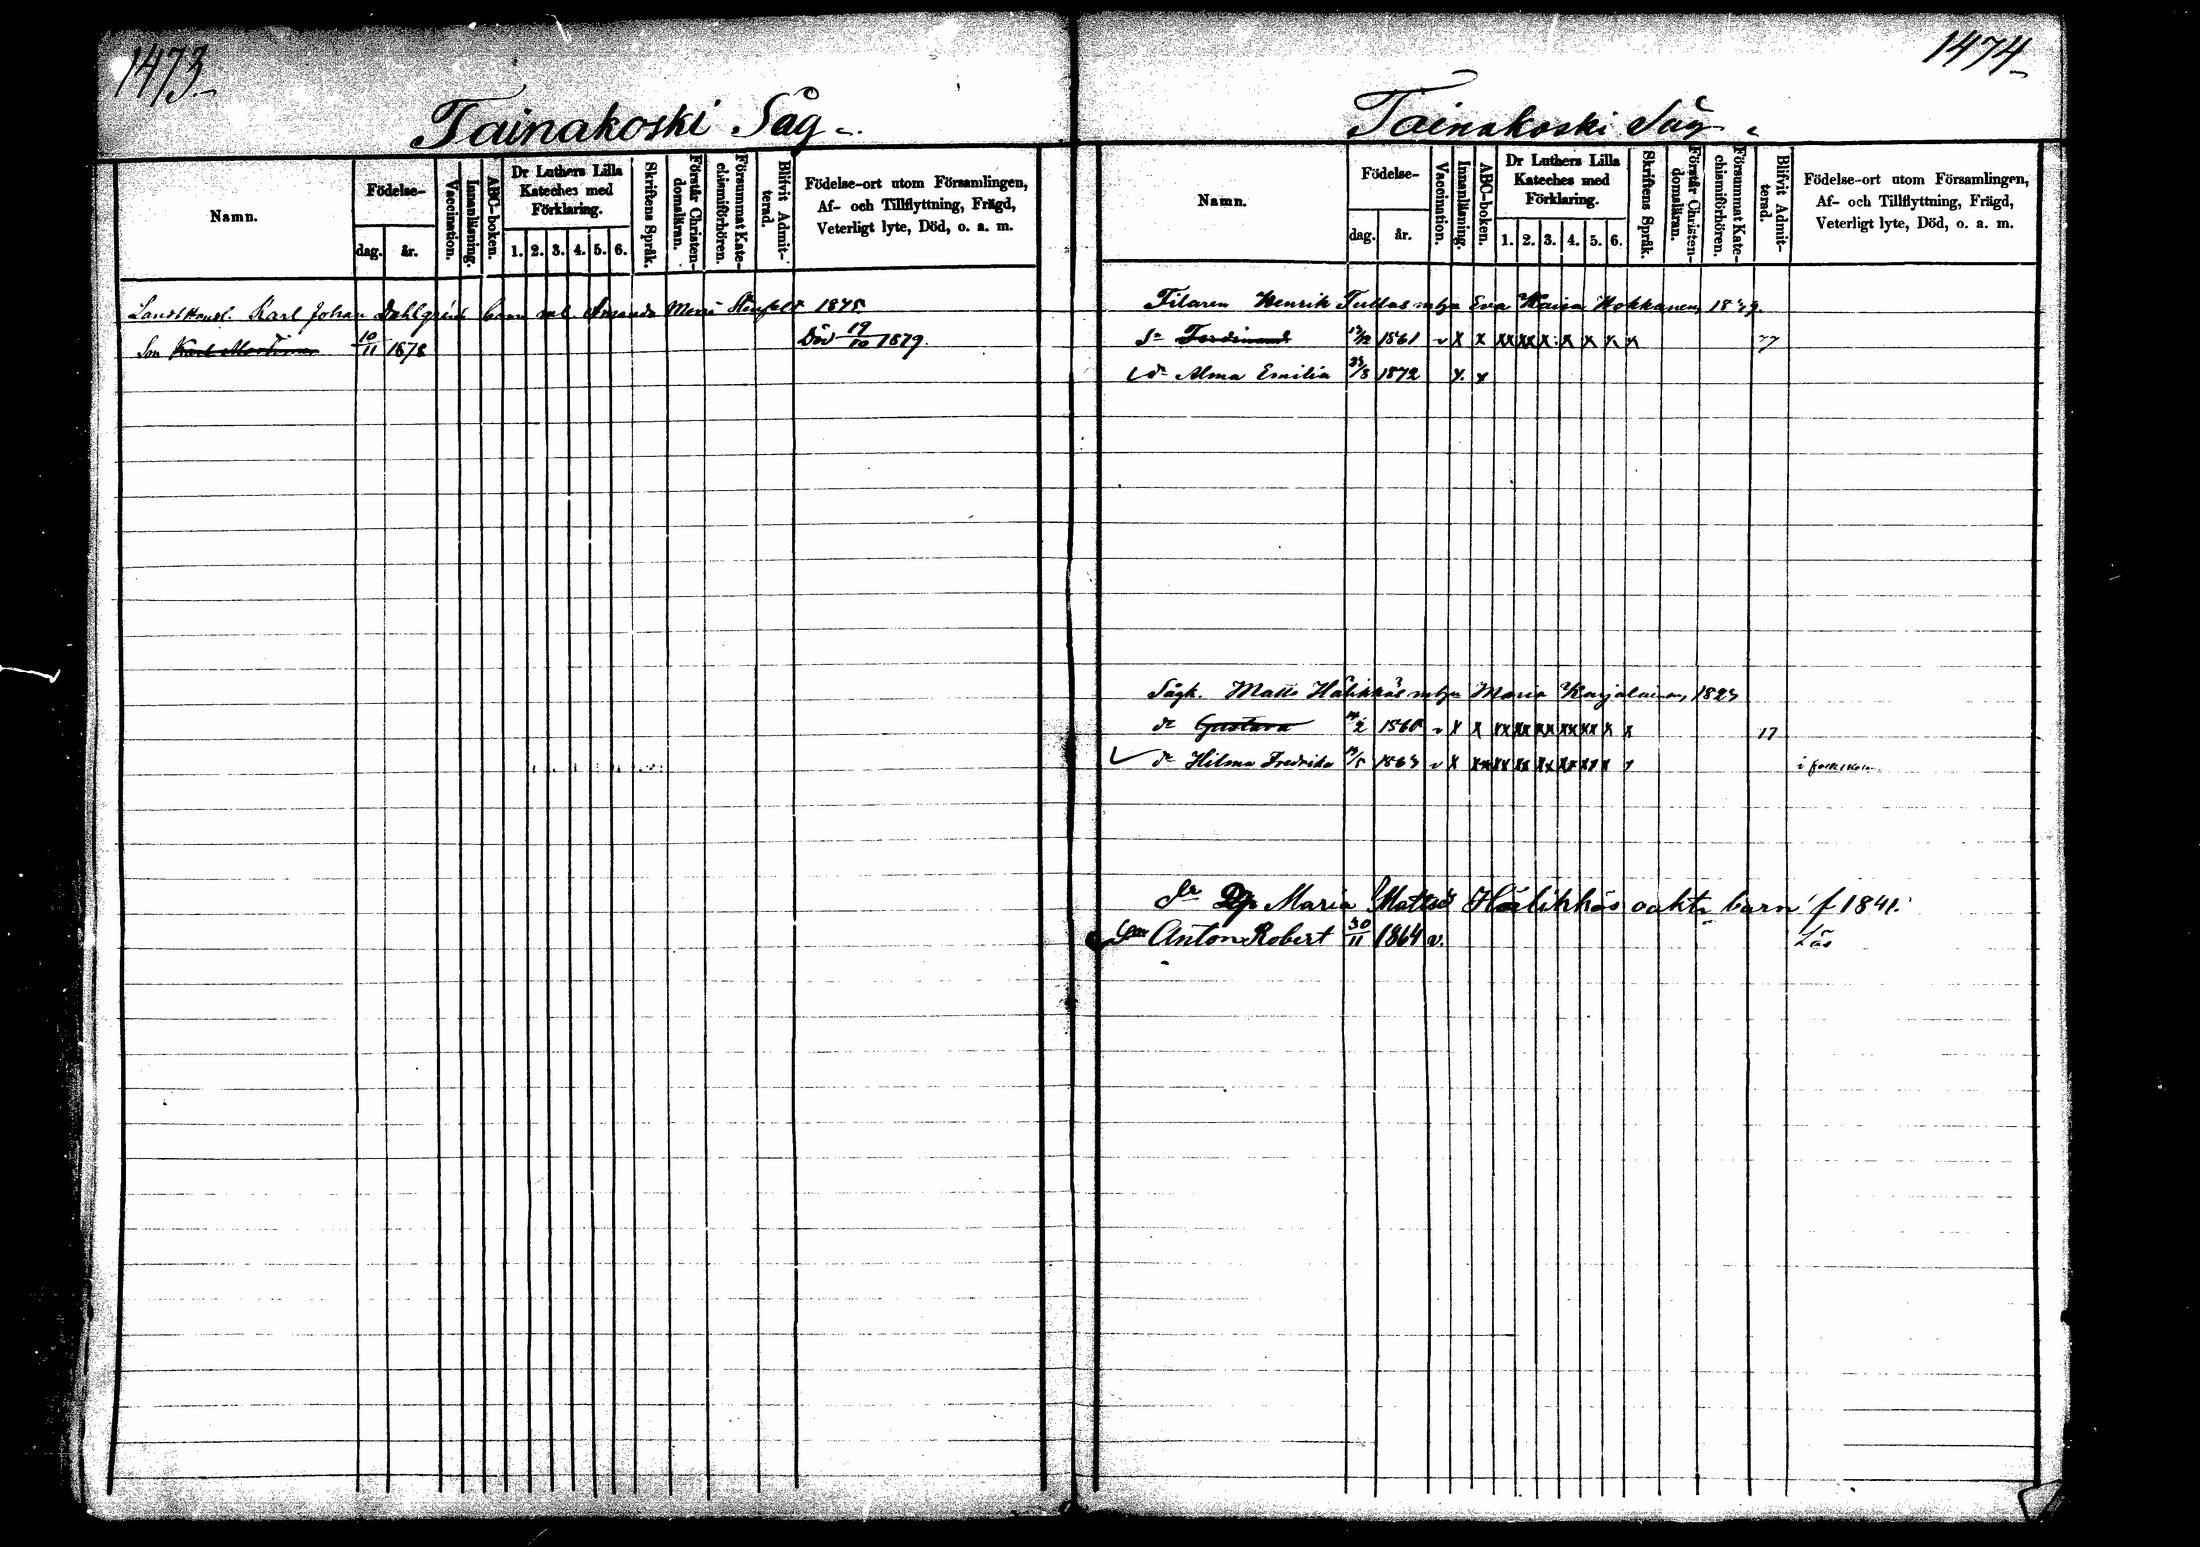 1473
Tainakoski Såg
Namn.
Födelse-
dag.
år.
Vaccination.
Innanläsning.
ABC-boken.
Dr Luthers Lilla
Kateches med
Förklaring.
1. 2. 3. 4. 5. 6.
Skriftens Språk.
Förstår Christen-
domsläran.
Försummat Kate-
chismiförhören.
Blifvit Admit-
terad.
Födelse-ort utom Församlingen,
Af- och Tillflyttning, Frägd,
Veterligt lyte, Död, o. a. m.
Karl Johan Dahlgréns barn Amanda 1875.
Son Karl 10/11 1878 Död 19/10 1879.
1474
Tainakoski Såg
Namn.
Födelse-
dag.
år.
Vaccination.
Innanläsning.
ABC-boken.
Dr Luthers Lilla
Kateches med
Förklaring.
1. 2. 3. 4. 5. 6.
Skriftens Språk.
Förstår Christen-
domsläran.
Försummat Kate-
chismiförhören.
Blifvit Admit-
terad.
Födelse-ort utom Församlingen,
Af- och Tillflyttning, Frägd,
Veterligt lyte, Död, o. a. m.
Filaren Henrik Tullas Eva Kaisa Hokkanen
Ferdinand 1861 v x x xx xx x x x x x
Alma Emilia 1872 x x
Sågk. Matts Maria Karjalainen
Gustava 1860 v x x xx xx xx xx xx x x 17
Hilma Fredrika v x
Maria Mattsd Hälikkäs oäkta barn f 1841.
Son Anton Robert 30/11 1864 v. Läs